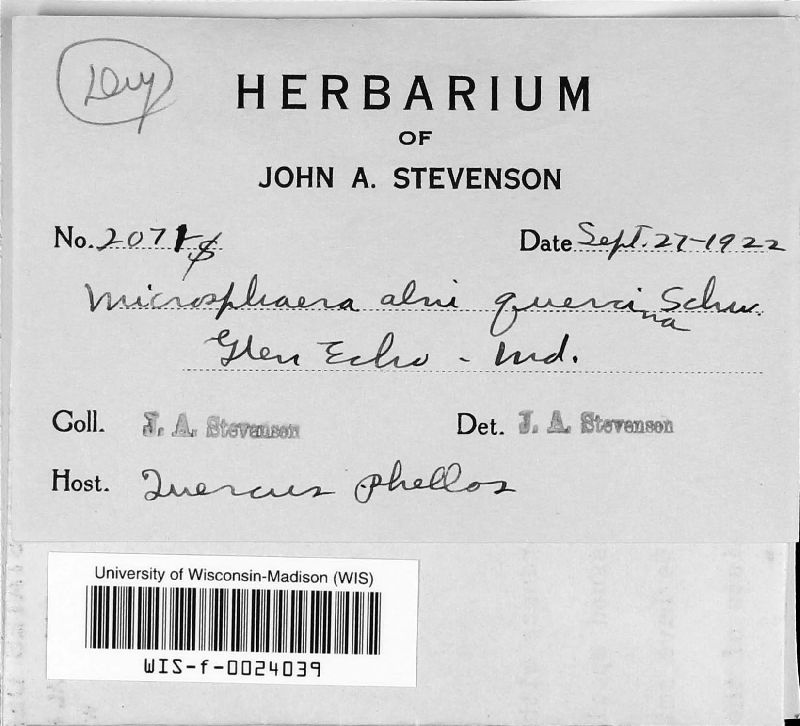 HERBARIUM
OF
JOHN A. STEVENSON
No. 207
Date Sept. 27-1922
Microsphaera alni quercina Schw.
Glen Echo - Md.
Coll. J. A. Stevenson
Det. J. A. Stevenson
Host. Quercus phellos
University of Wisconsin-Madison (WIS)
WIS-f-0024039